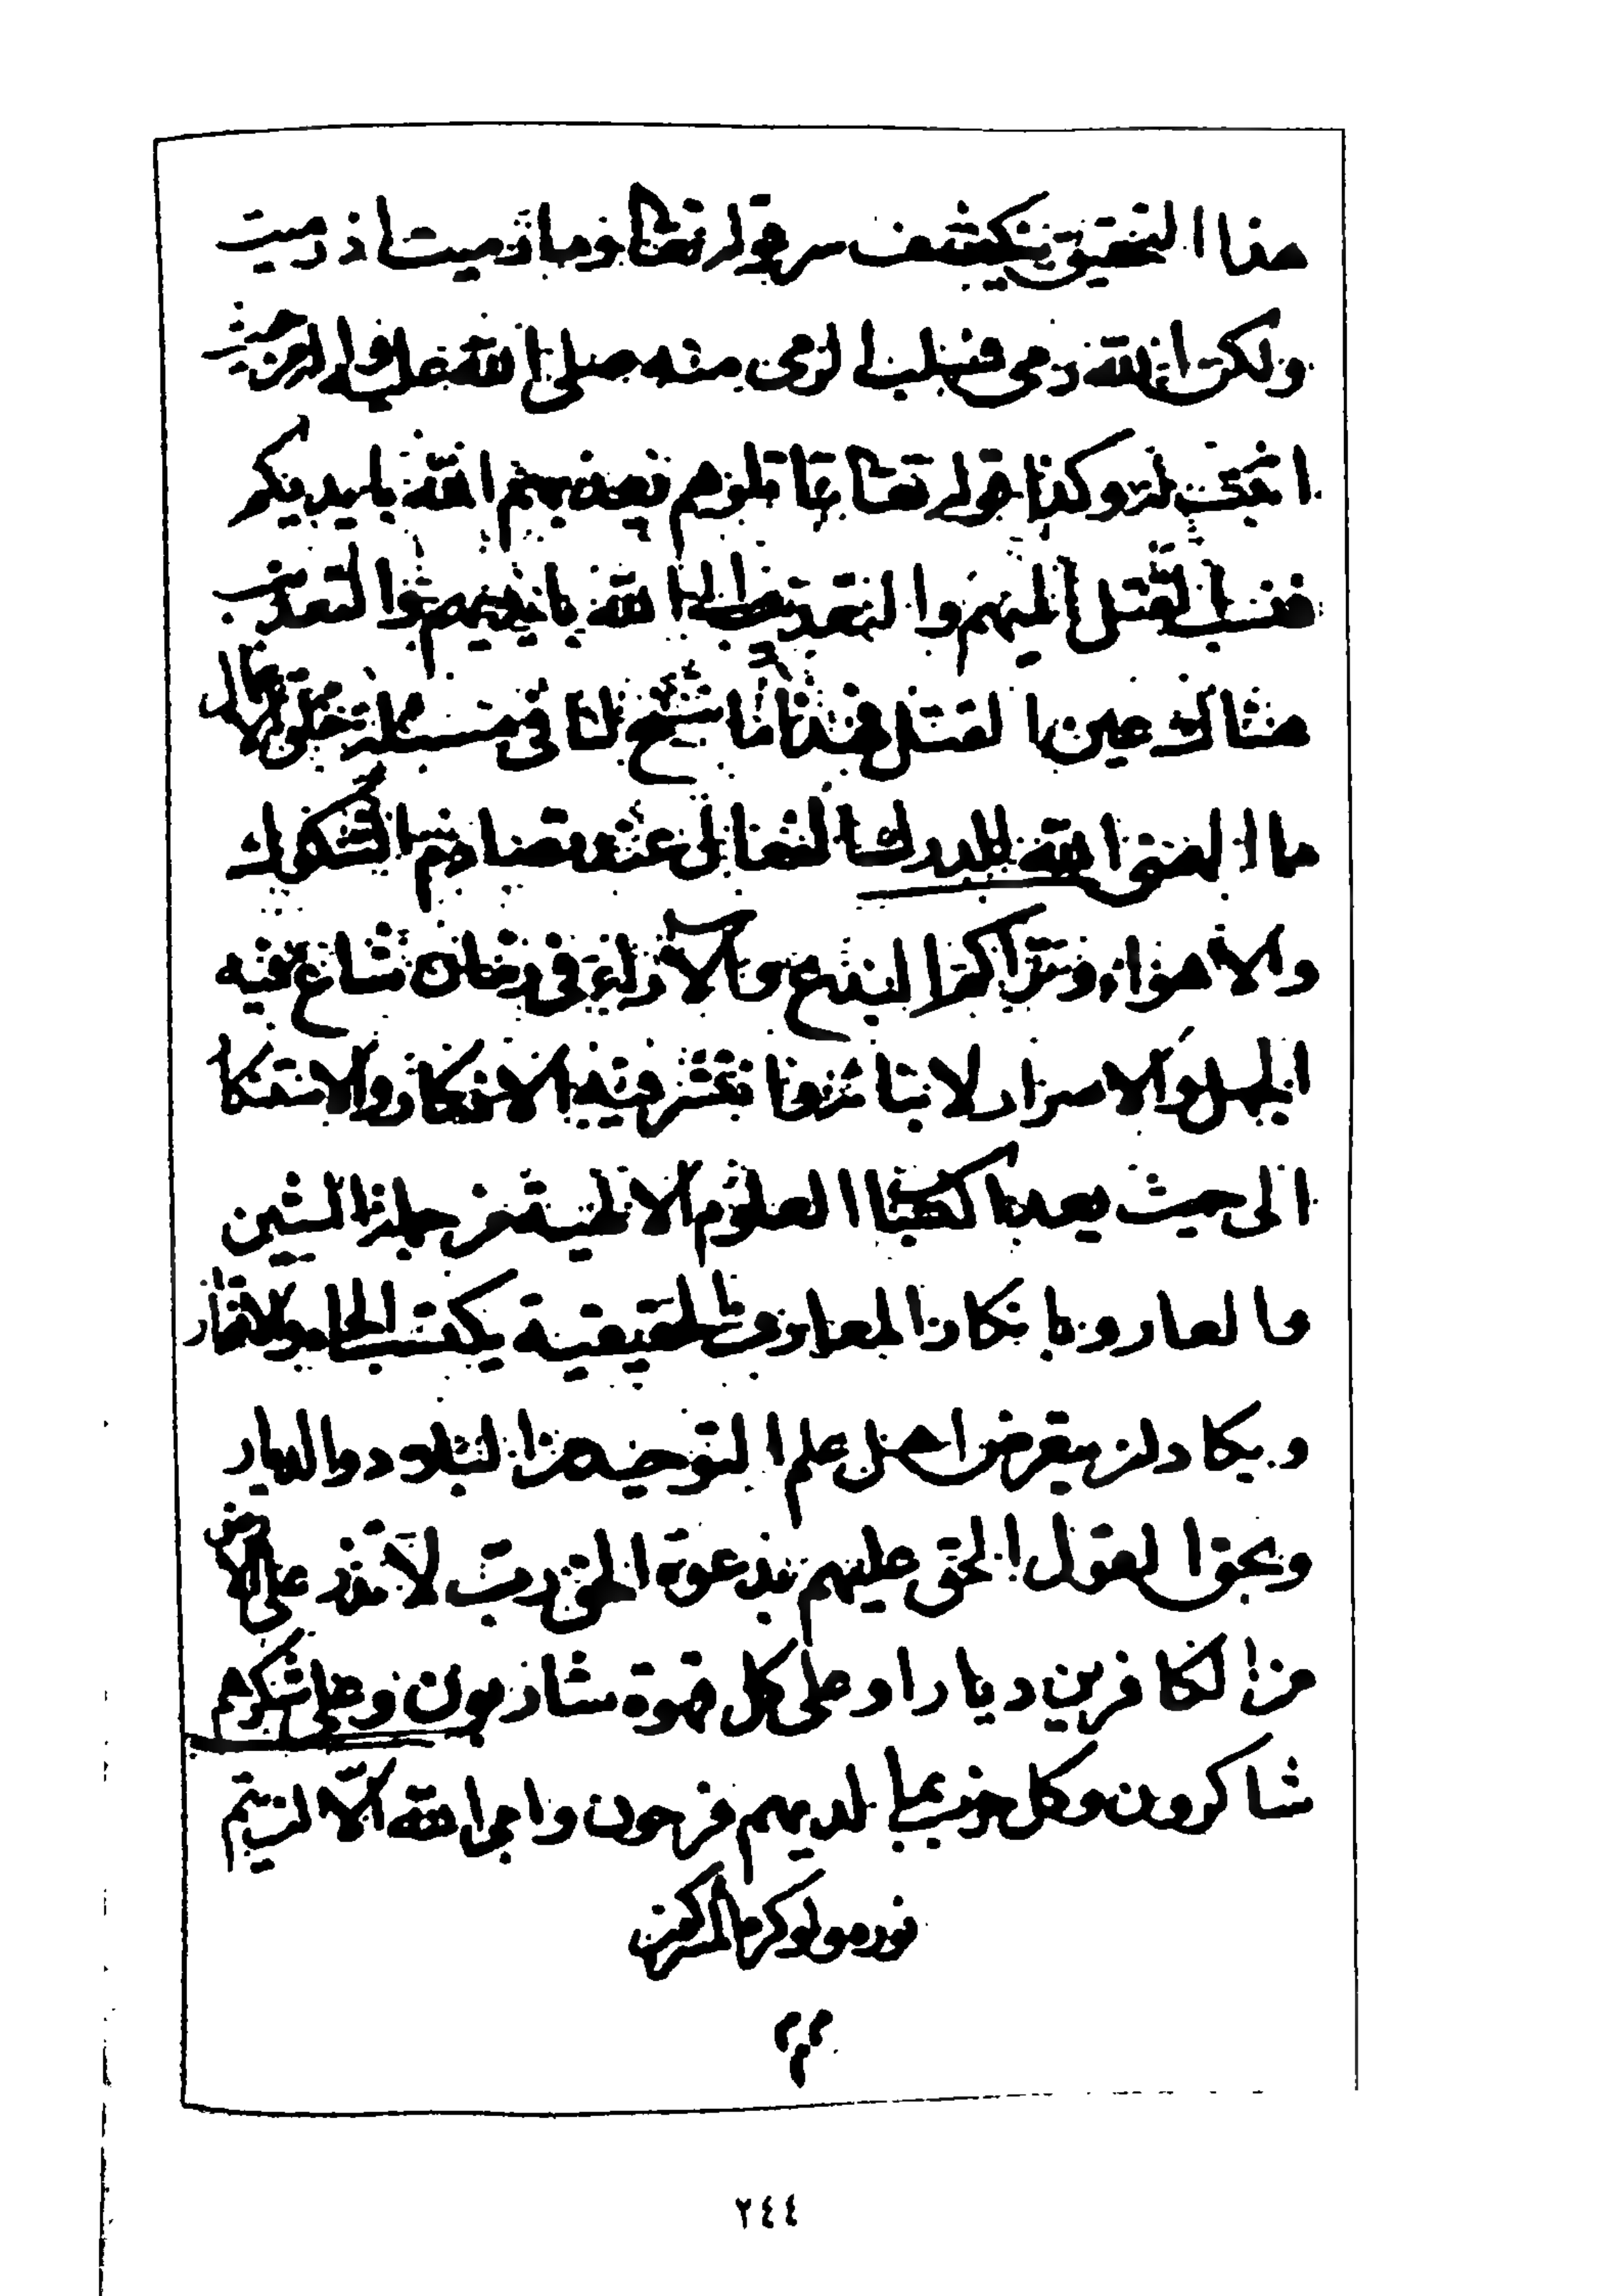 هذا التحقيق ينكشف سر قوله تعالى وما رميت اذ رميت
ولكن الله رمى فسلب الرمى منه صلى الله عليه واله من حيث
اثبت له وكذا قوله تعالى قاتلوهم يعذبهم الله بايديكم
فنسب القتل اليهم والتعذيب الى الله بايديهم والتعذيب
هناك عين القتل فهذا ما سنح لنا فى مسئلة خلق الاعمال
ما القى الله المدرك المتعالى عند تصادم الشكوك
والاهواء وتراكم البدع والآراء فى زمان شاع فيه
الجهل والاسرار لابنائه وفا نتشر فيه الانكار والاستكبا
الى حيث يعد اكتساب العلوم الالهية من جملة الشين
والعار وبانكار المعارف الحقيقية يكتسب الجاه والافتخار
ويكاد ان ينقرض اصل علم التوحيد من البلاد والديار
ويحق القول الحق عليهم بدعوة الحق رب لا تذر على الارض
من الكافرين ديارا وعلى كل قهوة شاربون وعلى شكرهم
شاكرون وكل حزب بما لديهم فرحون وابى الله الا ان يتم
نوره ولو كره المشركون
٢٤٤